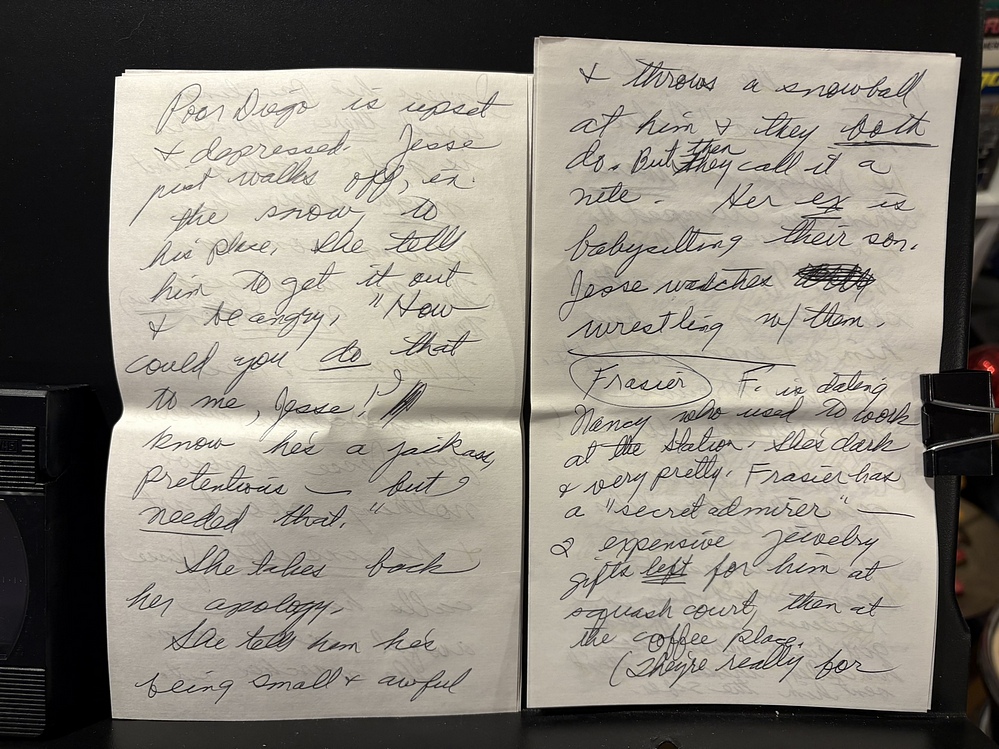 Poor Diego is upset
& depressed. Jesse
just walks off, in
the snow, to
his place. She tells
him to get it out
& be angry, "How
could you do that
to me, Jesse! I
know he's a jackass,
pretentious — but I
needed that."
She takes back
her apology.
She tells him he's
being small & awful
& throws a snowball
at him & they both
do. But then they call it a
nite. Her ex is
babysitting their son.
Jesse watches
wrestling w/ them.
Frasier F. is dating
Nancy who used to work
at the station. She's dark
& very pretty. Frasier has
a "secret admirer" —
2 expensive jewelry
gifts left for him at
squash court, then at
the coffee place.
(They're really for